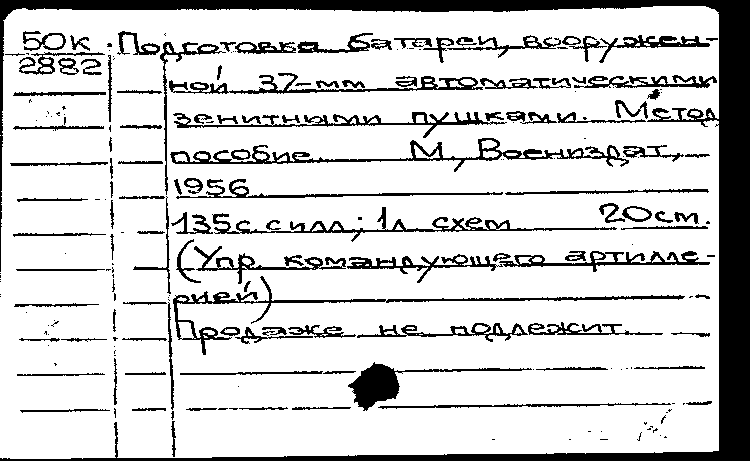 50к Подготовка батареи, вооружен-
2882
ной 37-мм автоматическими
зенитными пушками. Метод
пособие. М., Воениздат,
1956.
135с. с илл.; 1л. схем 20см.
(Упр. командующего артилле-
рией)
Продаже не подлежит.